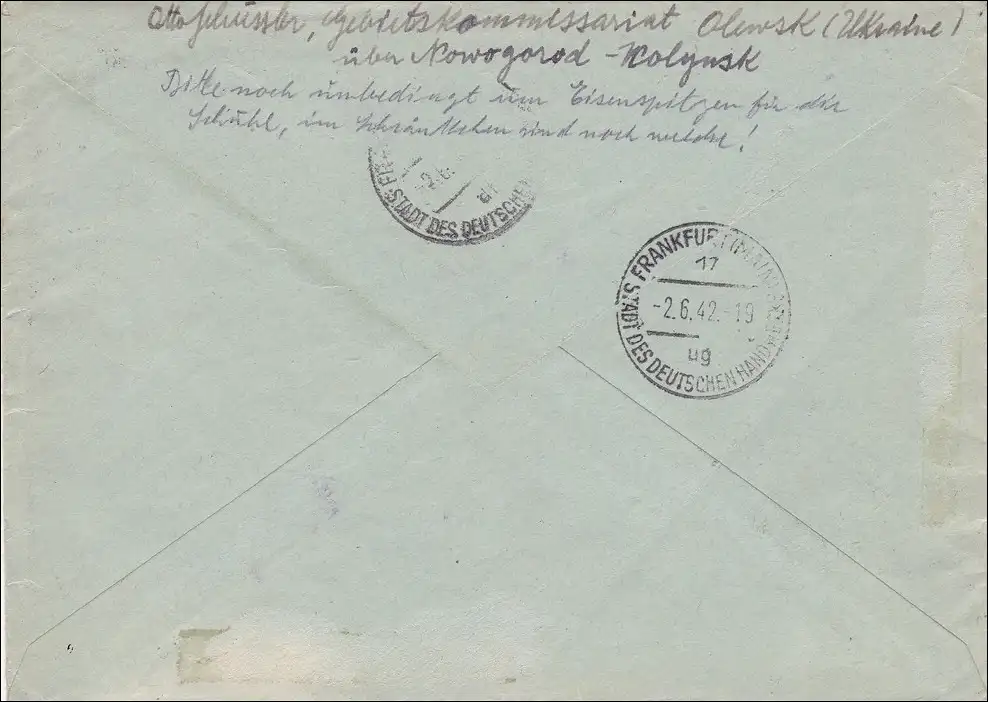 Otto Schüssler, Gebietskommissariat Olewsk (Ukraine)
über Nowogorod-Wolynsk
Bitte noch unbedingt um Eisenspitzen für die
Schuhe, im Schränkchen sind noch welche!
FR
-2.6.
STADT DES DEUTSCHEN
FRANKFURT (MAIN)
17
-2.6.42.-19
ug
STADT DES DEUTSCHEN HAND